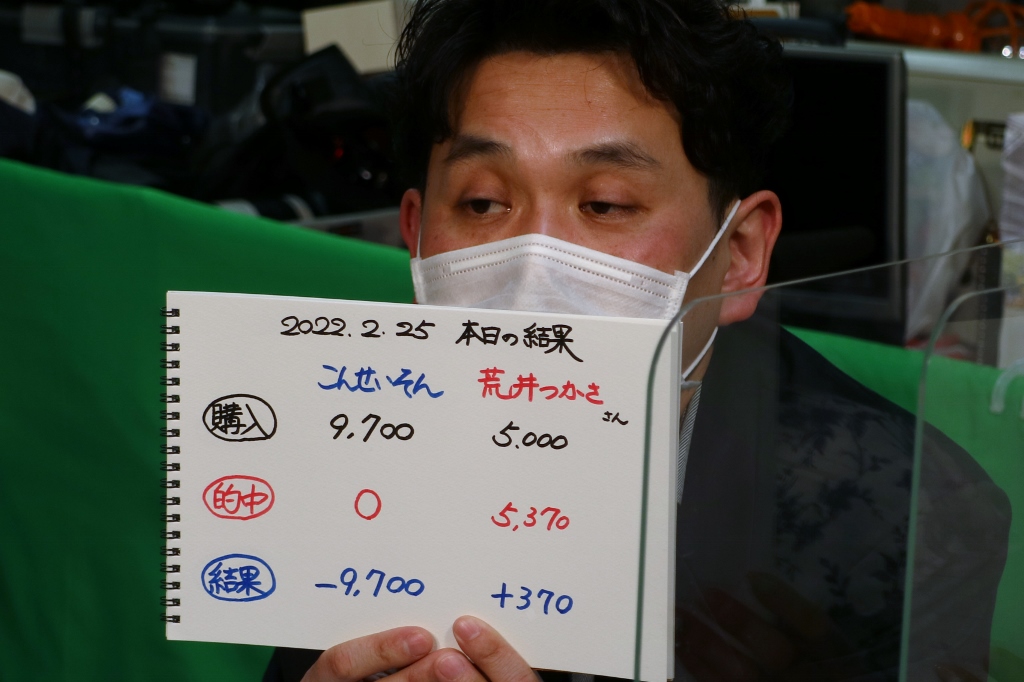 2022.2.25 本日の結果
こんせいそん 荒井つかささん
購入 9,700 5,000
的中 0 5,370
結果 -9,700 +370